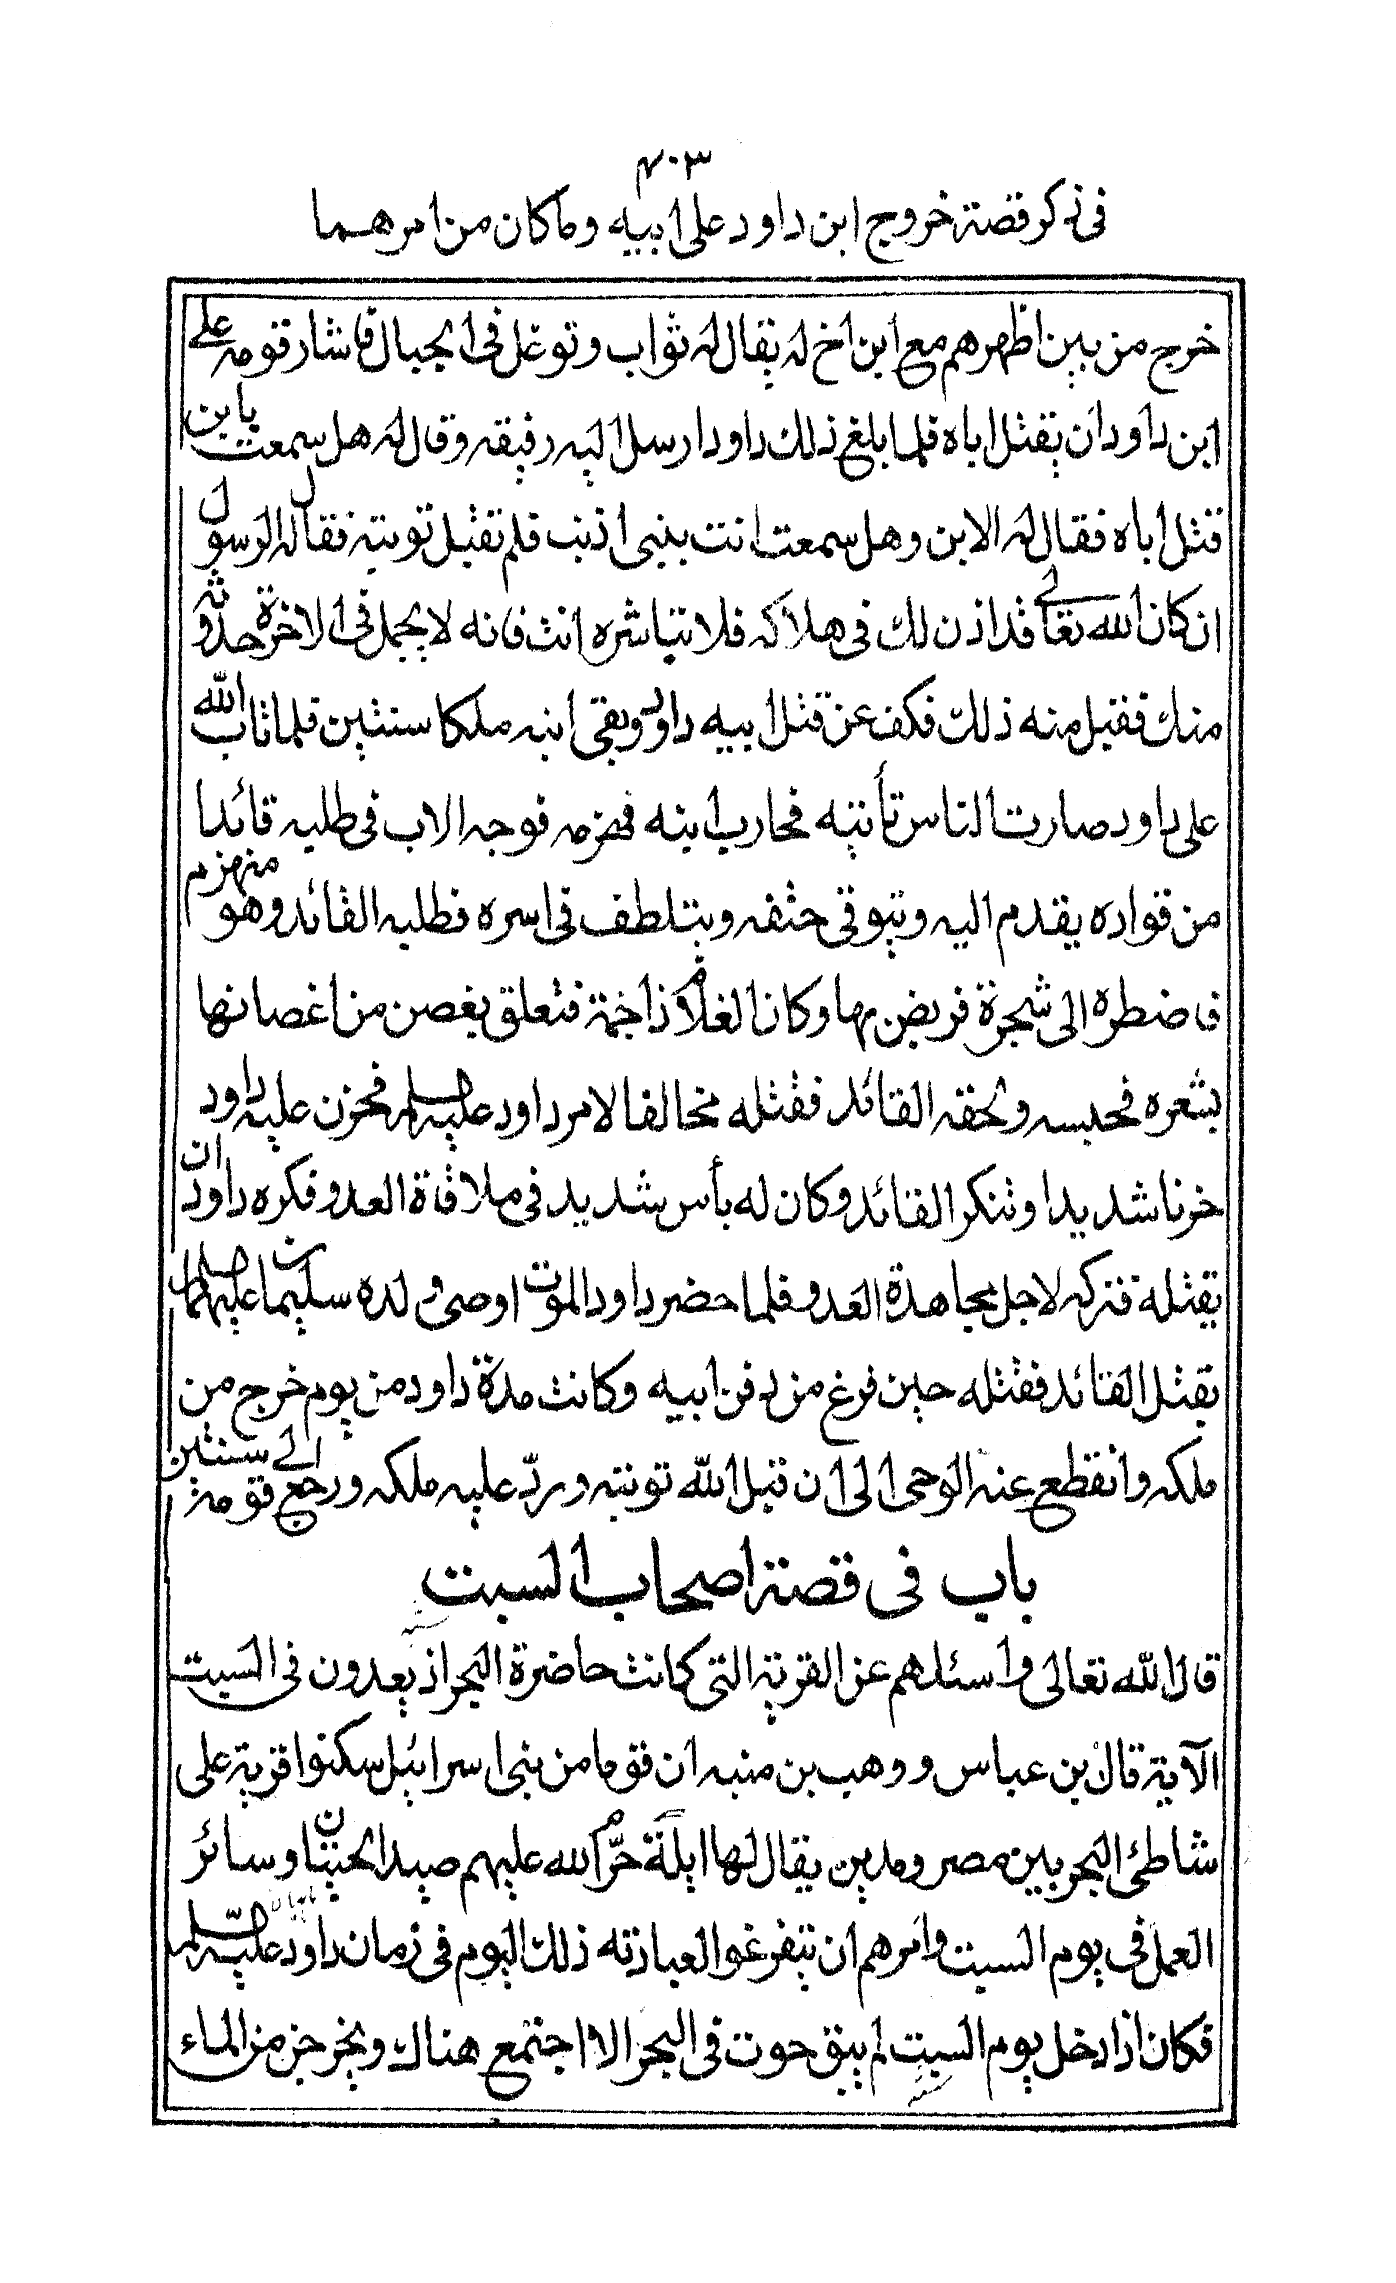 ٤٠٣
فى ذكر قصة خروج ابن داود على ابيه وما كان من امرهما
خرج من بين اظهرهم مع ابن اخ له يقال له ثواب وتوغل فى الجبال فاشار قومه على
ابن داود ان يقتل اباه فلما ابلغ ذلك داود ارسل اليه رفيقه وقال له هل سمعت يا بن
قتل اباه فقال له الابن وهل سمعت انت بنبى اذنب فلم تقبل توبته فقال له الرسول
ان كان الله تعالى قد اذن لك فى هلاكه فلا تباشره انت فانه لا يجمل فى الاخرة حدوثه
منك فقبل منه ذلك فكف عن قتل ابيه داود وبقى ابنه ملكا سنتين فلما تاب الله
على داود صارت الناس تأتيه فحارب ابنه فهزمه فوجه الاب فى طلبه قائدا
من قواده يقدم اليه ويتوقى حتفه ويتلطف فى اسره فطلبه القائد وهو منهزم
فاضطره الى شجرة فربض بها وكان الغلام ذا جمة فتعلق بغصن من اغصانها
بشعره فحبسه ولحقه القائد فقتله مخالفا لامر داود عليه السلم فحزن عليه داود
حزنا شديدا وتنكر القائد وكان له بأس شديد فى ملاقاة العدو فكره داود ان
يقتله فتركه لاجل مجاهدة العدو فلما حضر داود الموت اوصى ولده سليمان عليهما السلم
بقتل القائد فقتله حين فرغ من دفن ابيه وكانت مدة داود من يوم خرج من
ملكه وانقطع عنه الوحى الى ان قبل الله توبته ورد عليه ملكه ورجع قومه الى سنتين
باب فى قصة اصحاب السبت
قال الله تعالى واسئلهم عن القرية التى كانت حاضرة البحر اذ يعدون فى السبت
الآية قال بن عباس ووهب بن منبه ان قوما من بنى اسرائيل سكنوا قرية على
شاطئ البحر بين مصر ومدين يقال لها ايلة حرّم الله عليهم صيد الحيتان وسائر
العمل فى يوم السبت وامرهم ان يتفرغوا لعبادته ذلك اليوم فى زمان داود عليه السلم
فكان اذا دخل يوم السبت لم يبق حوت فى البحر الا اجتمع هناك ويخرجن من الماء